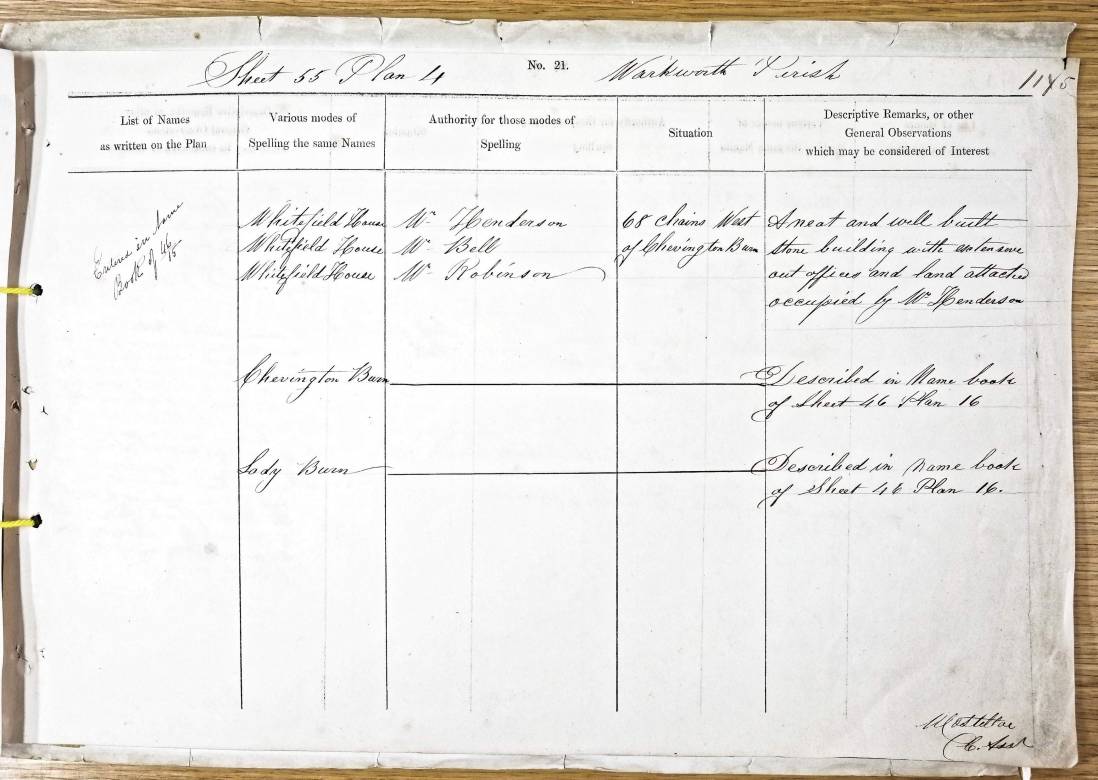 Sheet 55 Plan 4 No. 21. Warkworth Parish 115
List of Names
as written on the Plan
Various modes of
Spelling the same Names
Authority for those modes of
Spelling
Situation
Descriptive Remarks, or other
General Observations
which may be considered of Interest
Entered in Name
Book of 46/15
Whitefield House Mr Henderson 68 chains West A neat and well built
Whitefield House Mr Bell of Chevington Burn stone building with extensive
Whitefield House Mr Robinson out offices and land attached
occupied by Mr Henderson
Chevington Burn Described in Name book
of Sheet 46 Plan 16
Lady Burn Described in name book
of Sheet 46 Plan 16.
C. Asst